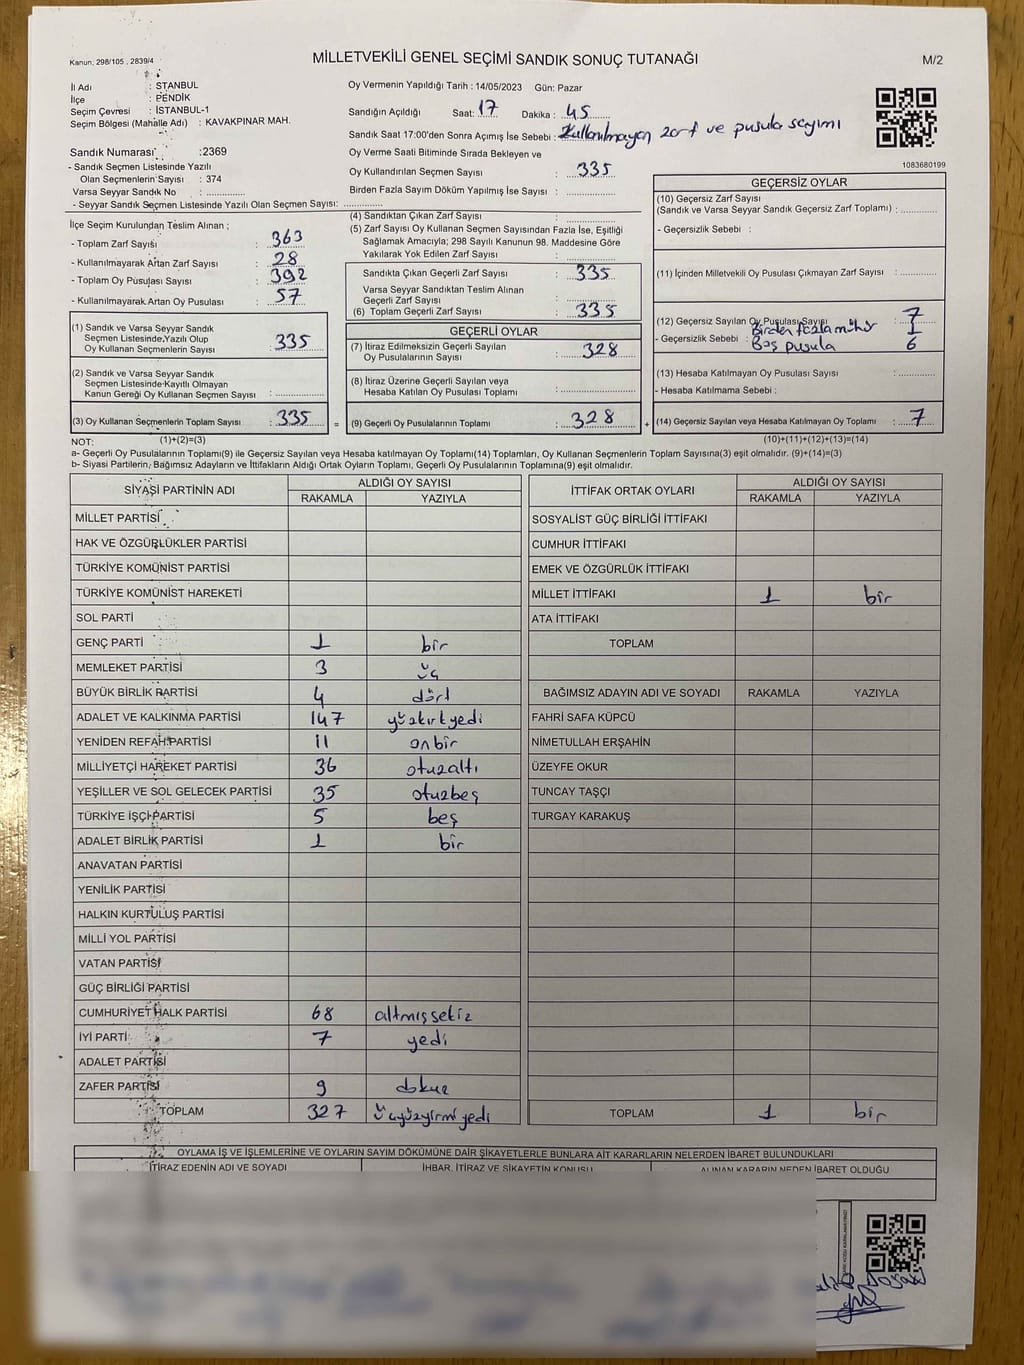 MİLLETVEKİLİ GENEL SEÇİMİ SANDIK SONUÇ TUTANAĞI
Kanun; 298/105 , 2839/4
M/2
İl Adı : İSTANBUL
İlçe : PENDİK
Seçim Çevresi : İSTANBUL-1
Seçim Bölgesi (Mahalle Adı) : KAVAKPINAR MAH.
Sandık Numarası :2369
- Sandık Seçmen Listesinde Yazılı
Olan Seçmenlerin Sayısı : 374
Varsa Seyyar Sandık No : ..............
- Seyyar Sandık Seçmen Listesinde Yazılı Olan Seçmen Sayısı: ..............
Oy Vermenin Yapıldığı Tarih : 14/05/2023 Gün: Pazar
Sandığın Açıldığı Saat: 17 Dakika : 45
Sandık Saat 17:00'den Sonra Açımış İse Sebebi : Kullanılmayan zarf ve pusula sayımı
Oy Verme Saati Bitiminde Sırada Bekleyen ve
Oy Kullandırılan Seçmen Sayısı : 335
Birden Fazla Sayım Döküm Yapılmış İse Sayısı : ..............
1083680199
İlçe Seçim Kurulundan Teslim Alınan ;
- Toplam Zarf Sayısı : 363
- Kullanılmayarak Artan Zarf Sayısı : 28
- Toplam Oy Pusulası Sayısı : 392
- Kullanılmayarak Artan Oy Pusulası : 57
(1) Sandık ve Varsa Seyyar Sandık
Seçmen Listesinde Yazılı Olup
Oy Kullanan Seçmenlerin Sayısı : 335
(2) Sandık ve Varsa Seyyar Sandık
Seçmen Listesinde Kayıtlı Olmayan
Kanun Gereği Oy Kullanan Seçmen Sayısı : ..............
(3) Oy Kullanan Seçmenlerin Toplam Sayısı : 335 =
(4) Sandıktan Çıkan Zarf Sayısı : ..............
(5) Zarf Sayısı Oy Kullanan Seçmen Sayısından Fazla İse, Eşitliği
Sağlamak Amacıyla; 298 Sayılı Kanunun 98. Maddesine Göre
Yakılarak Yok Edilen Zarf Sayısı : ..............
Sandıkta Çıkan Geçerli Zarf Sayısı : 335
Varsa Seyyar Sandıktan Teslim Alınan
Geçerli Zarf Sayısı : ..............
(6) Toplam Geçerli Zarf Sayısı : 335
GEÇERLİ OYLAR
(7) İtiraz Edilmeksizin Geçerli Sayılan
Oy Pusulalarının Sayısı : 328
(8) İtiraz Üzerine Geçerli Sayılan veya
Hesaba Katılan Oy Pusulası Toplamı : ..............
(9) Geçerli Oy Pusulalarının Toplamı : 328 +
GEÇERSİZ OYLAR
(10) Geçersiz Zarf Sayısı
(Sandık ve Varsa Seyyar Sandık Geçersiz Zarf Toplamı) : ..............
- Geçersizlik Sebebi :
(11) İçinden Milletvekili Oy Pusulası Çıkmayan Zarf Sayısı : ..............
(12) Geçersiz Sayılan Oy Pusulası Sayısı : 7
Birden fazla mühür 1
- Geçersizlik Sebebi : Boş pusula 6
(13) Hesaba Katılmayan Oy Pusulası Sayısı : ..............
- Hesaba Katılmama Sebebi :
(14) Geçersiz Sayılan veya Hesaba Katılmayan Oy Toplamı : 7
NOT: (1)+(2)=(3) (10)+(11)+(12)+(13)=(14)
a- Geçerli Oy Pusulalarının Toplamı(9) ile Geçersiz Sayılan veya Hesaba katılmayan Oy Toplamı(14) Toplamları, Oy Kullanan Seçmenlerin Toplam Sayısına(3) eşit olmalıdır. (9)+(14)=(3)
b- Siyasi Partilerin, Bağımsız Adayların ve İttifakların Aldığı Ortak Oyların Toplamı, Geçerli Oy Pusulalarının Toplamına(9) eşit olmalıdır.
SİYASİ PARTİNİN ADI ALDIĞI OY SAYISI
RAKAMLA YAZIYLA
MİLLET PARTİSİ
HAK VE ÖZGÜRLÜKLER PARTİSİ
TÜRKİYE KOMÜNİST PARTİSİ
TÜRKİYE KOMÜNİST HAREKETİ
SOL PARTİ
GENÇ PARTİ 1 bir
MEMLEKET PARTİSİ 3 üç
BÜYÜK BİRLİK PARTİSİ 4 dört
ADALET VE KALKINMA PARTİSİ 147 yüzkırkyedi
YENİDEN REFAH PARTİSİ 11 onbir
MİLLİYETÇİ HAREKET PARTİSİ 36 otuzaltı
YEŞİLLER VE SOL GELECEK PARTİSİ 35 otuzbeş
TÜRKİYE İŞÇİ PARTİSİ 5 beş
ADALET BİRLİK PARTİSİ 1 bir
ANAVATAN PARTİSİ
YENİLİK PARTİSİ
HALKIN KURTULUŞ PARTİSİ
MİLLİ YOL PARTİSİ
VATAN PARTİSİ
GÜÇ BİRLİĞİ PARTİSİ
CUMHURİYET HALK PARTİSİ 68 altmışsekiz
İYİ PARTİ 7 yedi
ADALET PARTİSİ
ZAFER PARTİSİ 9 dokuz
TOPLAM 327 üçyüzyirmiyedi
İTTİFAK ORTAK OYLARI ALDIĞI OY SAYISI
RAKAMLA YAZIYLA
SOSYALİST GÜÇ BİRLİĞİ İTTİFAKI
CUMHUR İTTİFAKI
EMEK VE ÖZGÜRLÜK İTTİFAKI
MİLLET İTTİFAKI 1 bir
ATA İTTİFAKI
TOPLAM
BAĞIMSIZ ADAYIN ADI VE SOYADI RAKAMLA YAZIYLA
FAHRİ SAFA KÜPCÜ
NİMETULLAH ERŞAHİN
ÜZEYFE OKUR
TUNCAY TAŞÇI
TURGAY KARAKUŞ
TOPLAM 1 bir
OYLAMA İŞ VE İŞLEMLERİNE VE OYLARIN SAYIM DÖKÜMÜNE DAİR ŞİKAYETLERLE BUNLARA AİT KARARLARIN NELERDEN İBARET BULUNDUKLARI
İTİRAZ EDENİN ADI VE SOYADI İHBAR, İTİRAZ VE ŞİKAYETİN KONUSU ALINAN KARARIN NEDEN İBARET OLDUĞU